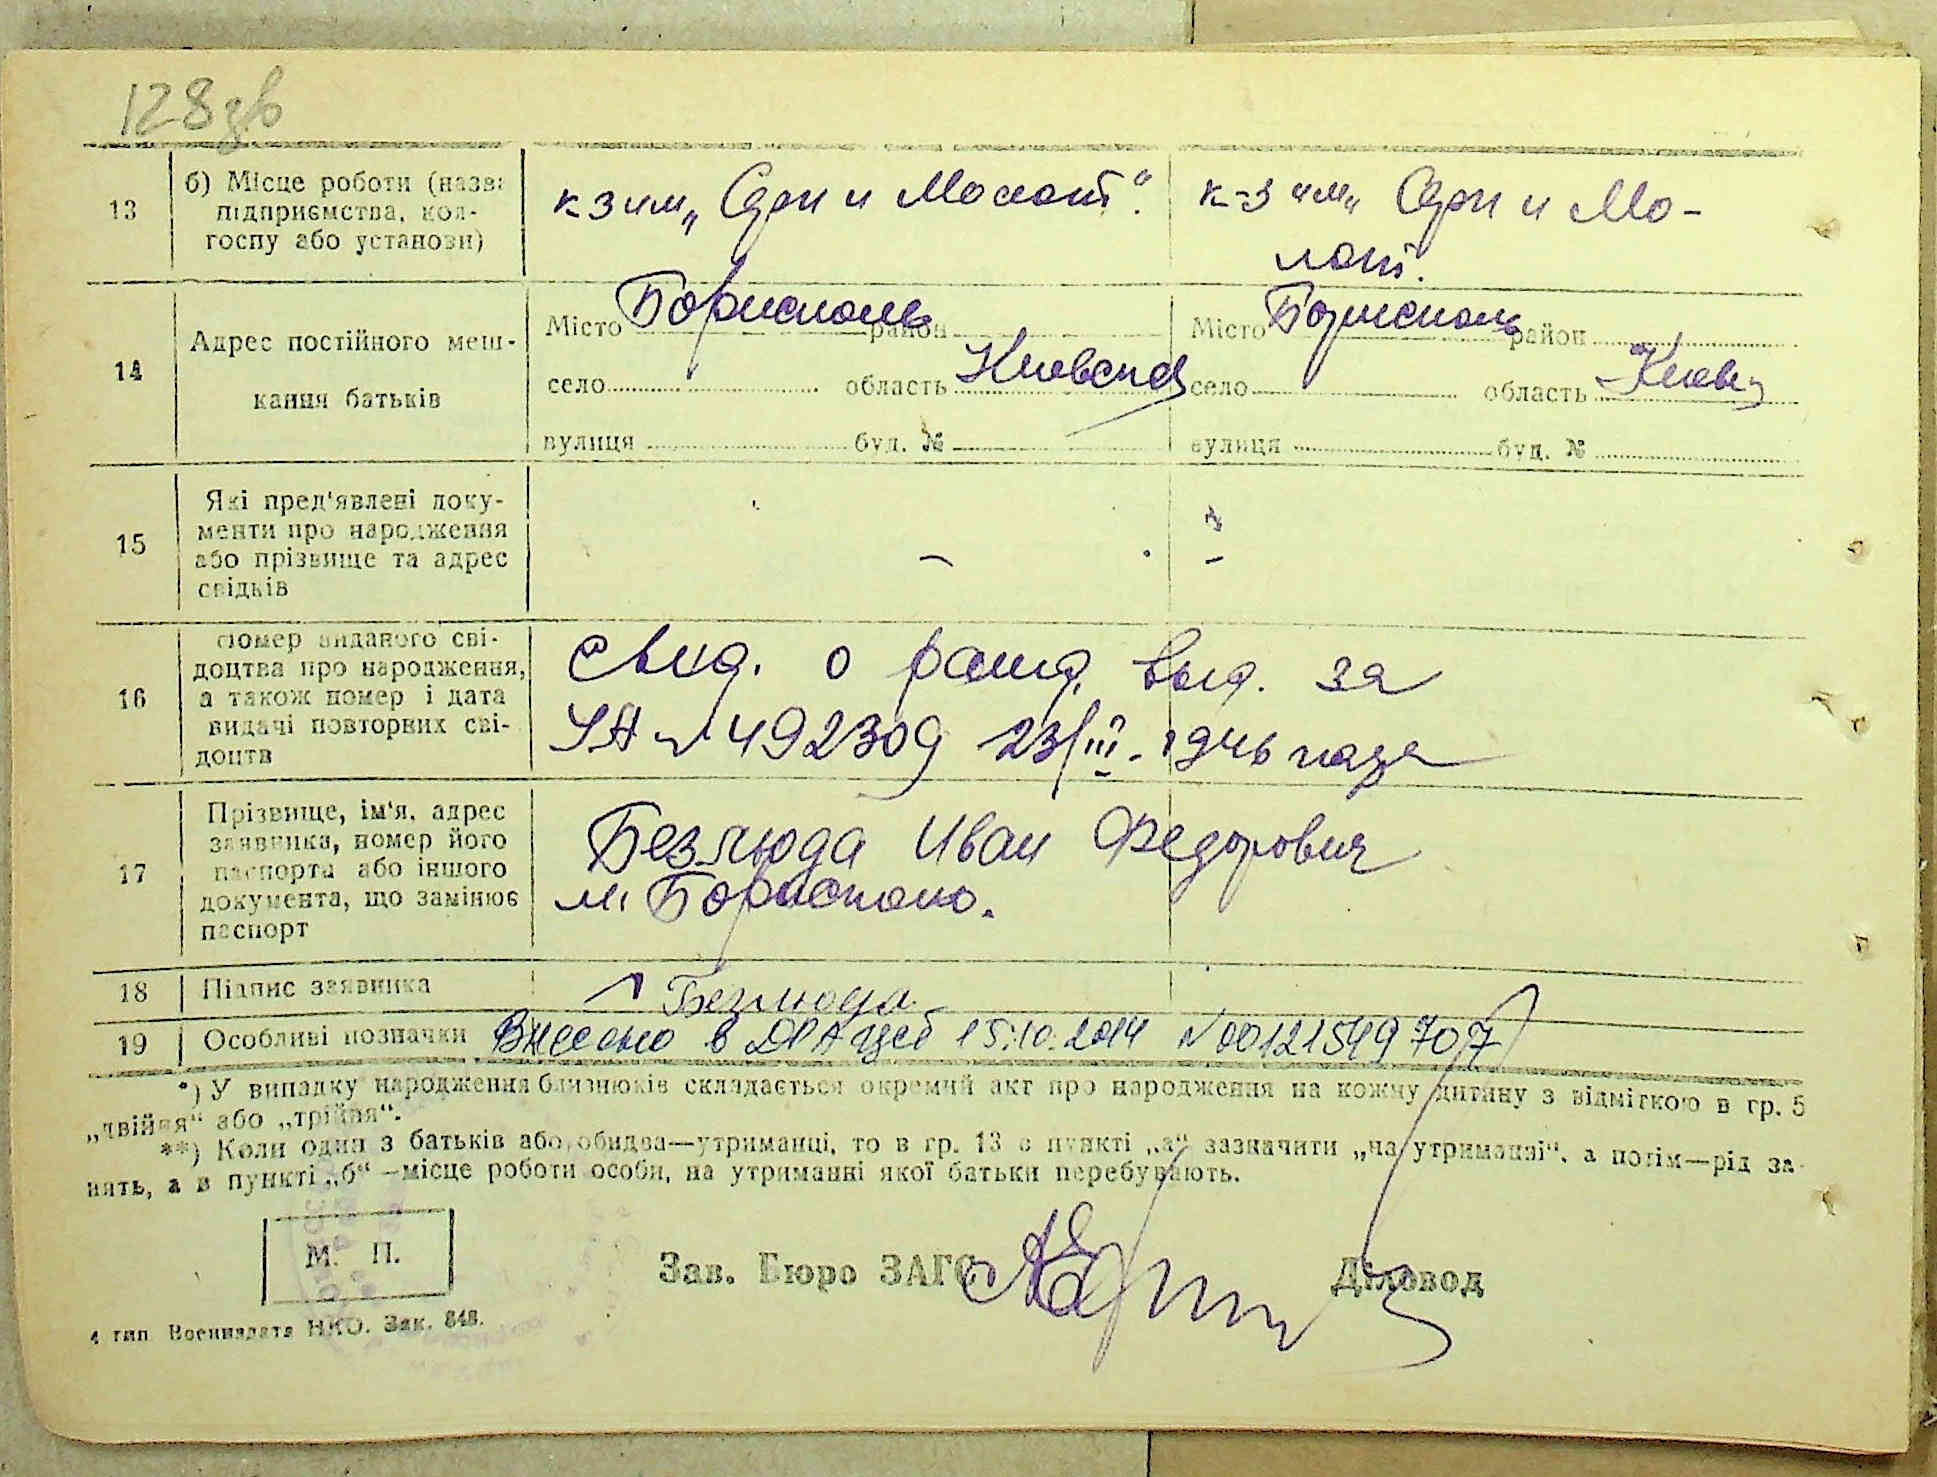 128зв
13
б) Місце роботи (назва
підприємства, кол-
госпу або установи)
к-з им „Серп и Молот".
к-з им „Серп и Мо-
лот.
14
Адрес постійного меш-
кання батьків
Місто Борисполь район
село область Киевская
вулиця буд. №
Місто Борисполь район
село область Киев
вулиця буд. №
15
Які пред'явлені доку-
менти про народження
або прізвище та адрес
свідків
–
–
16
Номер виданого сві-
доцтва про народження,
а також номер і дата
видачі повторних сві-
доцтв
Свид. о рожд. выд. за
УА № 492309 23/III - 1946 года
17
Прізвище, ім'я, адрес
заявника, номер його
паспорта або іншого
документа, що замінює
паспорт
Безлюда Иван Федорович
м. Борисполь.
18
Підпис заявника
Безлюда
19
Особливі позначки
Внесено в ДРАЦСГ 15.10.2014 №00121549707
*) У випадку народження близнюків складається окремий акт про народження на кожну дитину з відміткою в гр. 5
„двійня" або „трійня".
**) Коли один з батьків або обидва—утриманці, то в гр. 13 в пункті „а" зазначити „на утриманні", а потім—рід за-
нять, а в пункті „б" —місце роботи особи, на утриманні якої батьки перебувають.
М. П.
Зав. Бюро ЗАГС
Діловод
4 тип. Воениздата НКО. Зак. 848.